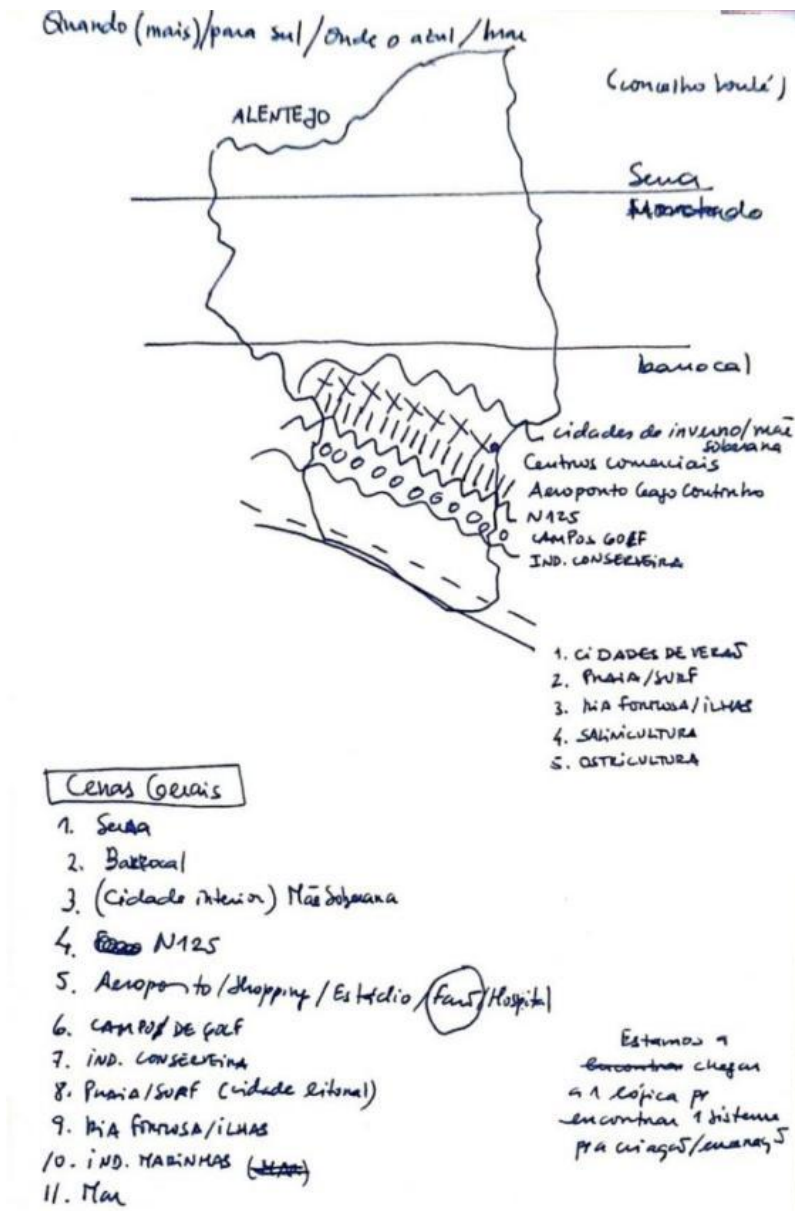 Quando (mais)/para sul/onde o azul/mar
(concelho Loulé)
ALENTEJO
Serra
barrocal
cidades de inverno/mãe
soberana
Centros comerciais
Aeroporto Gago Coutinho
N125
CAMPOS GOLF
IND. CONSERVEIRA
1. CIDADES DE VERÃO
2. PRAIA/SURF
3. RIA FORMOSA/ILHAS
4. SALINICULTURA
5. OSTRICULTURA
Cenas Gerais
1. Serra
2. Barrocal
3. (Cidade interior) Mãe Soberana
4. N125
5. Aeroporto/Shopping/Estádio/Faro/Hospital
6. CAMPOS DE GOLF
7. IND. CONSERVEIRA
8. PRAIA/SURF (cidade litoral)
9. RIA FORMOSA/ILHAS
10. IND. MARINHAS (MAR)
11. Mar
Estamos a
encontrar chegar
a 1 lógica pr
encontrar 1 sistema
pra criação/encenação